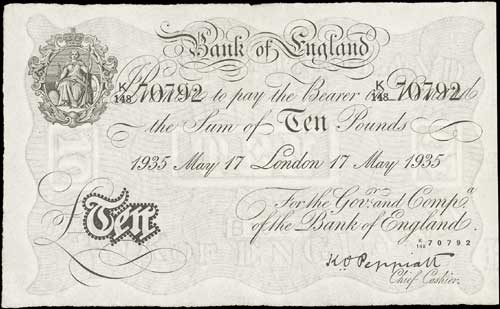 Bank of England
K/148 70792 to pay the Bearer K/148 70792
the Sum of Ten Pounds
1935 May 17 London 17 May 1935
For the Govr. and Compa.
£Ten of the Bank of England.
K/148 70792
K O Peppiatt
Chief Cashier.